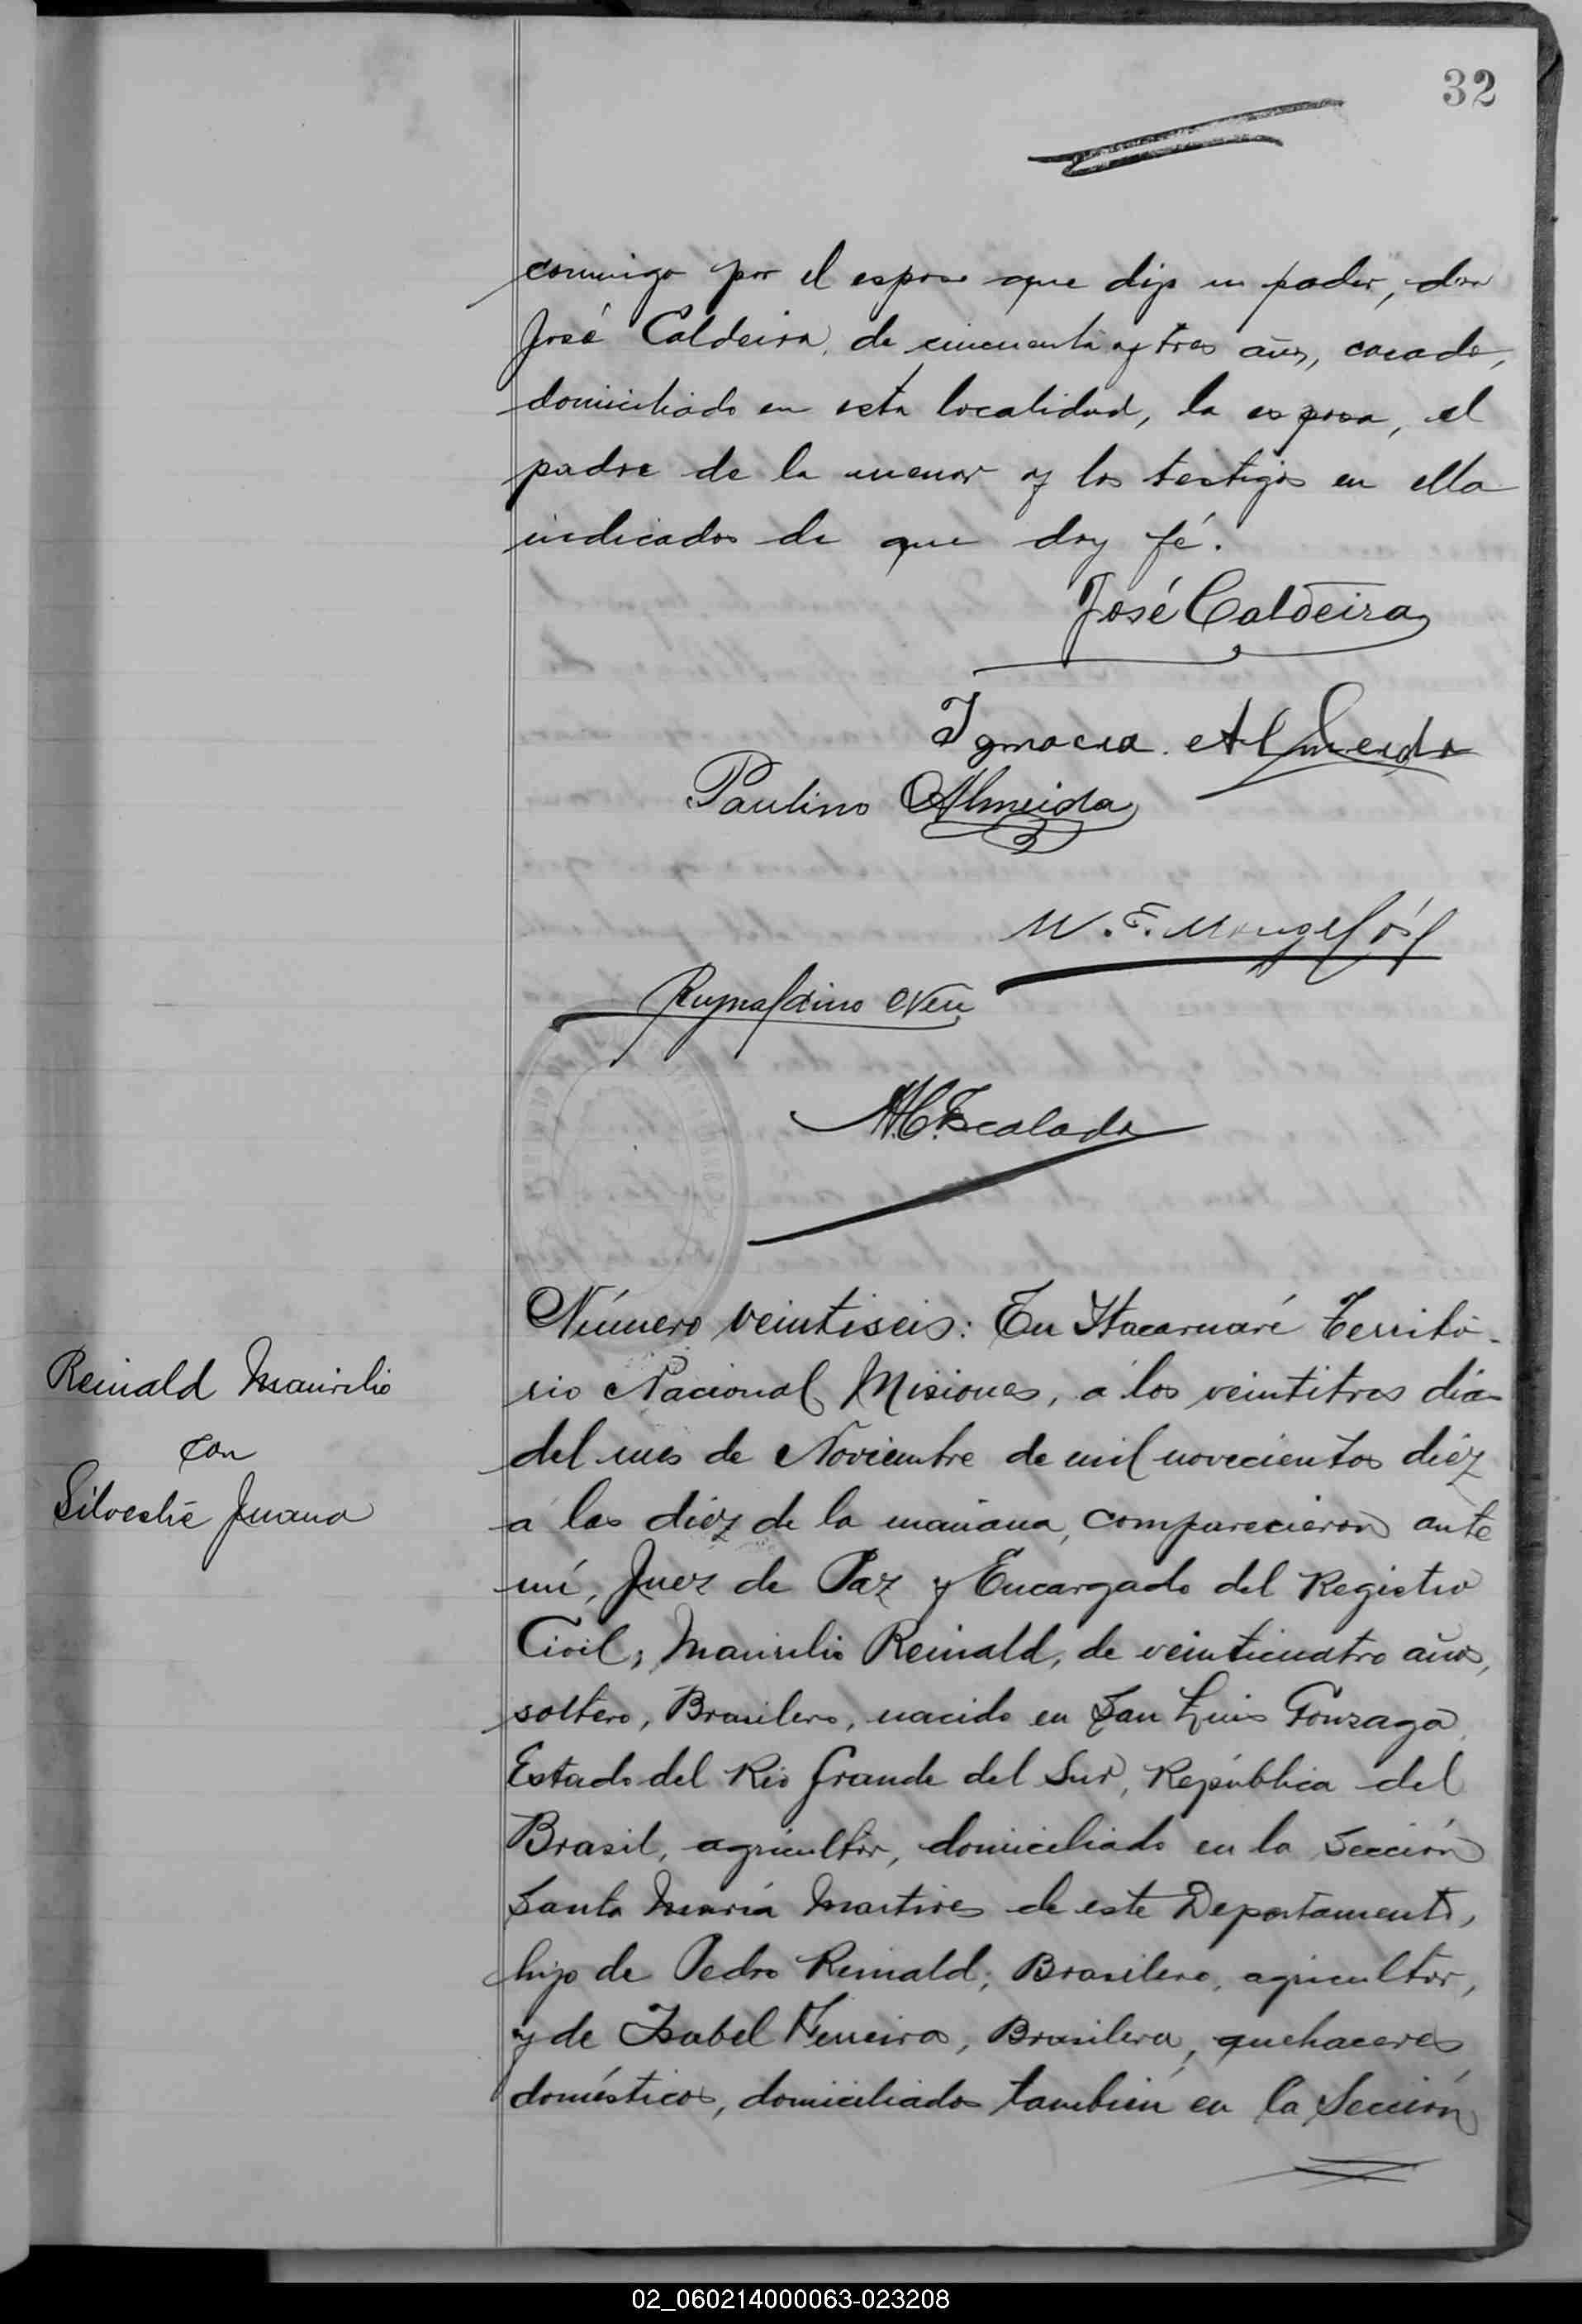 32
conmigo por el esposo que dijo no poder, don
José Caldeira, de cincuenta y tres años, casado,
domiciliado en esta localidad, la esposa, el
padre de la menor y los testigos en ella
indicados de que doy fé.
José Caldeira
Ignacia Almeida
Paulino Almeida
W. F.
Reynaldino Neu
M. C. Escalada
Reinald Maurilio
con
Silvestre Juana
Número veintiseis: En Itacaruaré Territo-
rio Nacional Misiones, á los veintitres dias
del mes de Noviembre de mil novecientos diéz
a las diéz de la mañana, comparecieron ante
mí, Juez de Paz y Encargado del Registro
Civil, Maurilio Reinald, de veinticuatro años,
soltero, Brasilero, nacido en San Luis Gonzaga
Estado del Rio Grande del Sur, República del
Brasil, agricultor, domiciliado en la Sección
Santa María Martires de este Departamento,
hijo de Pedro Reinald, Brasilero, agricultor,
y de Isabel Ferreira, Brasilera, quehaceres
domésticos, domiciliados también en la Sección
02_060214000063-023208